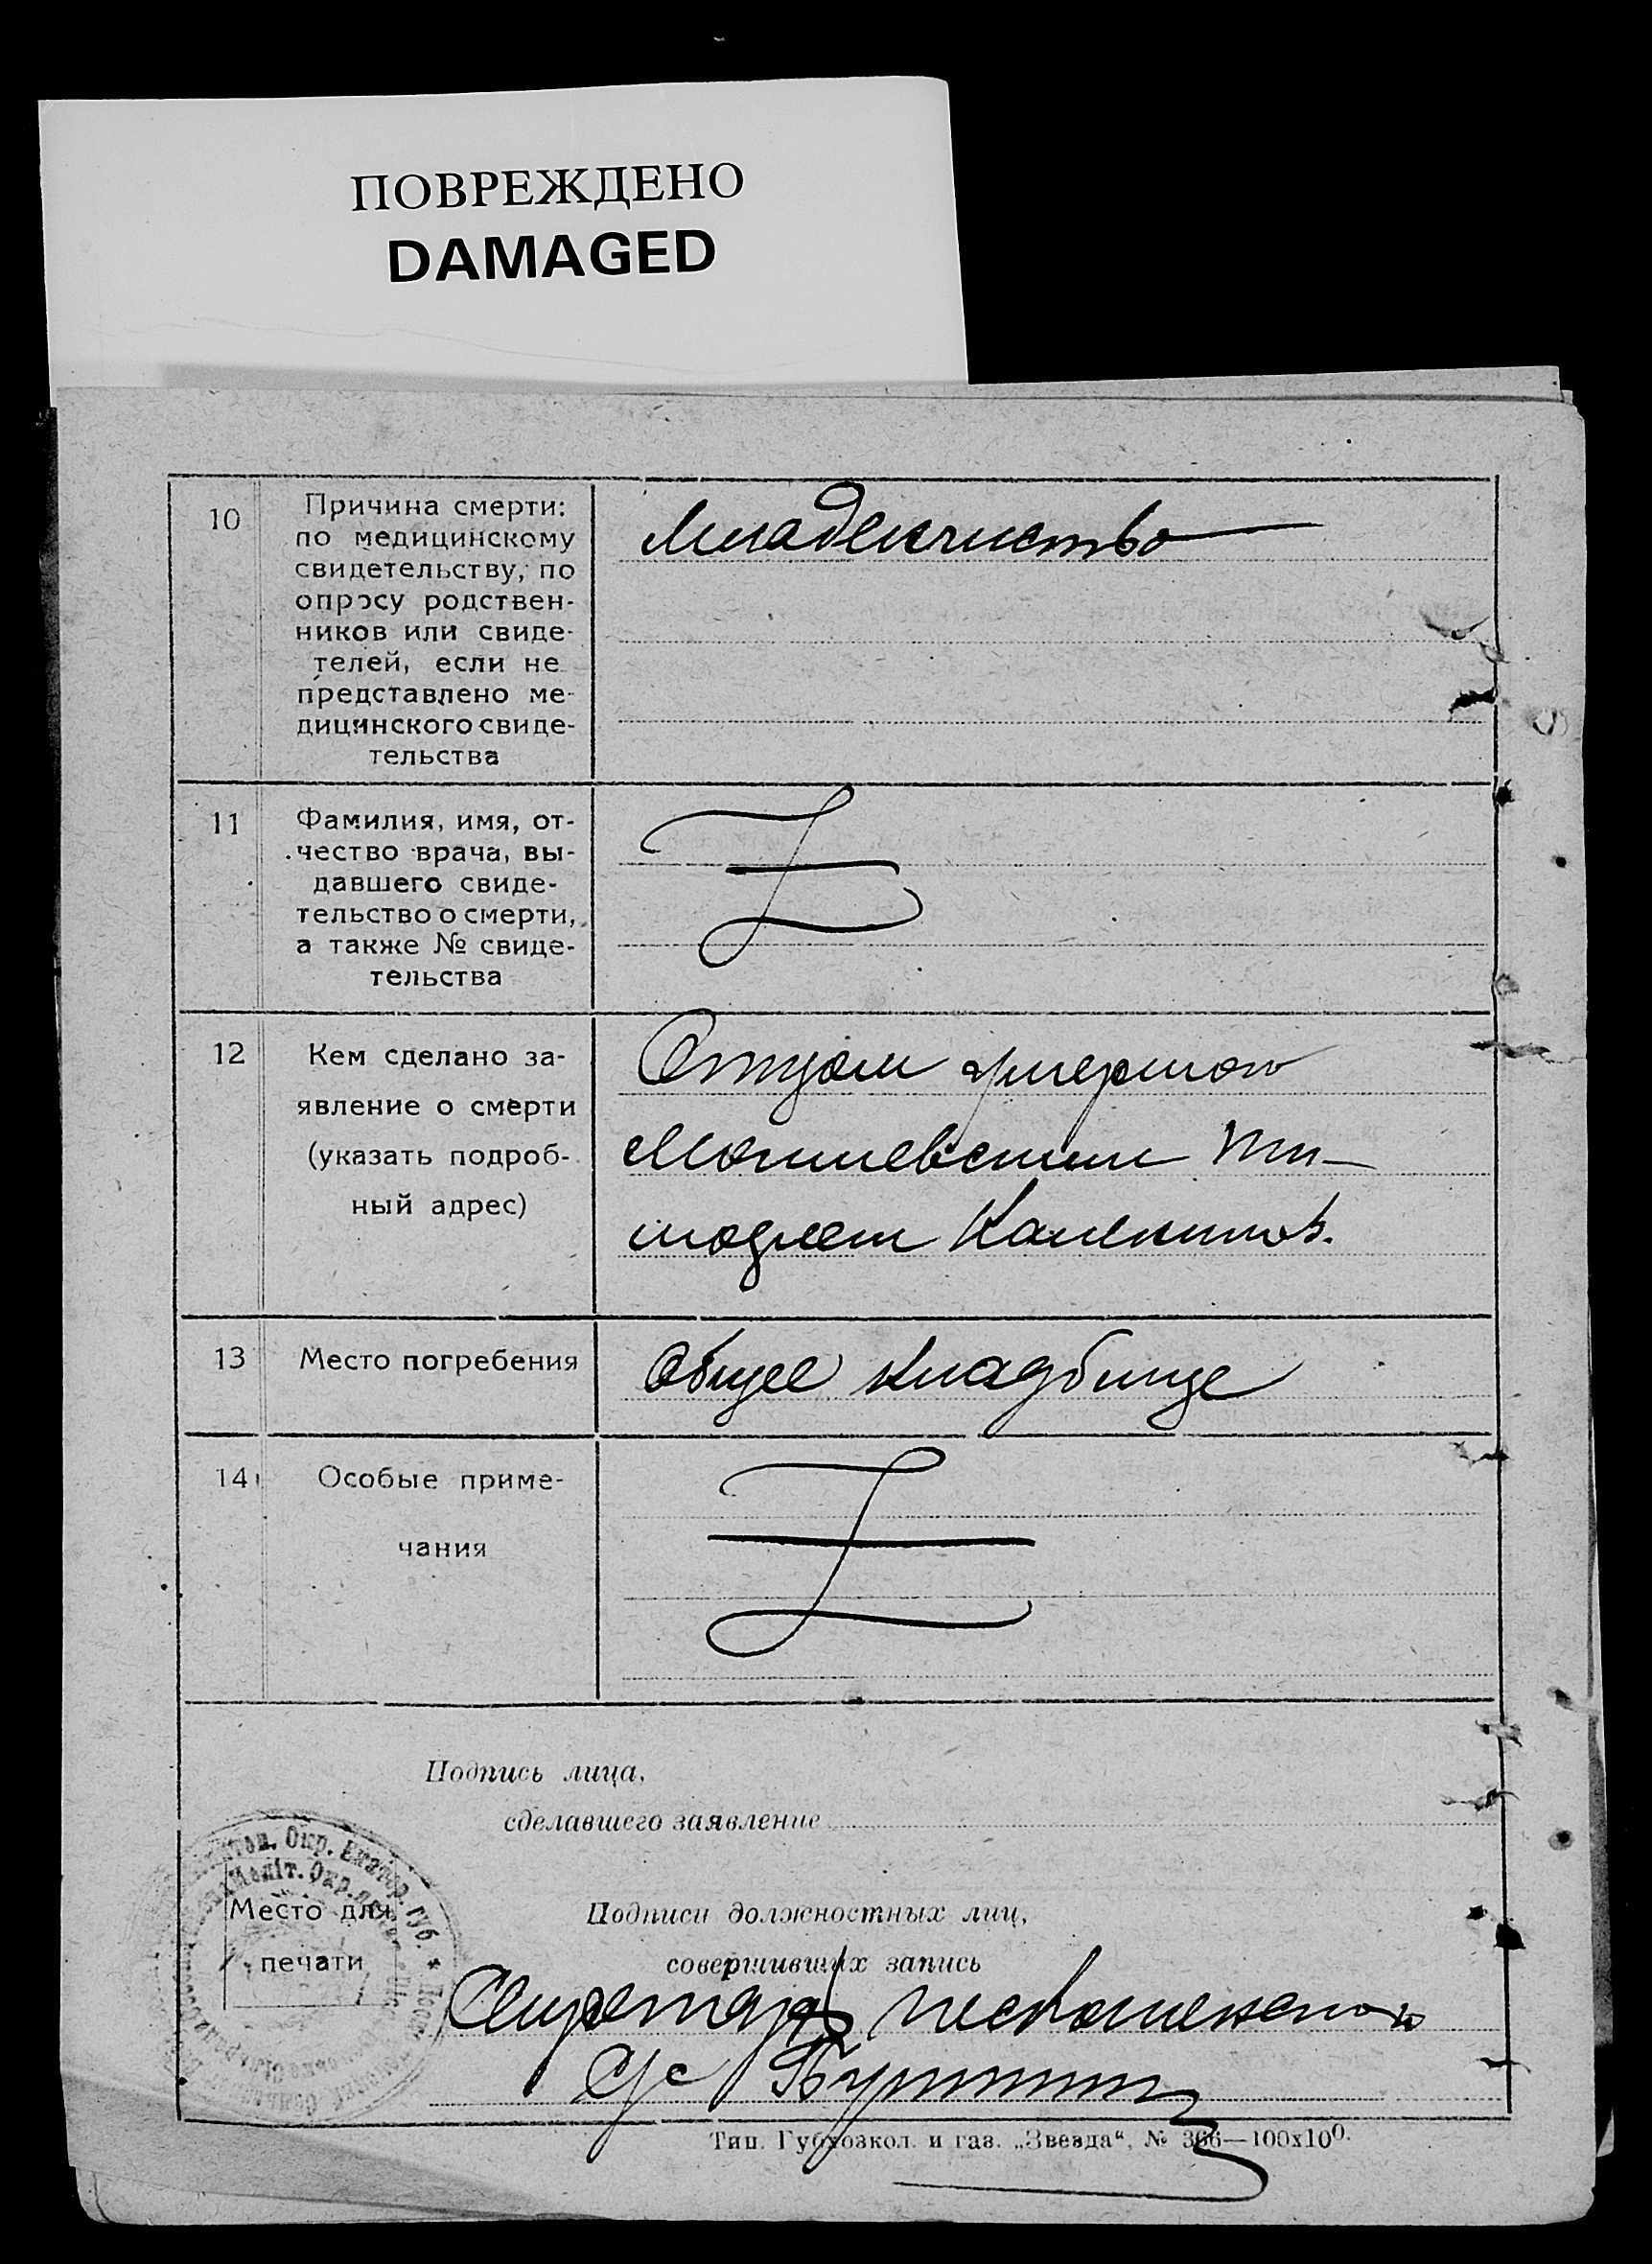 ПОВРЕЖДЕНО
DAMAGED
10
Причина смерти:
по медицинскому
свидетельству, по
опросу родствен-
ников или свиде-
телей, если не
представлено ме-
дицинского свиде-
тельства
Младенчество
11
Фамилия, имя, от-
чество врача, вы-
давшего свиде-
тельство о смерти,
а также № свиде-
тельства
12
Кем сделано за-
явление о смерти
(указать подроб-
ный адрес)
Отцом умершого
Могилевским Ти-
мофеем
13
Место погребения
Общее кладбище
14
Особые приме-
чания
Подпись лица,
сделавшего заявление
Окр. Екатер. губ.
Меліт. Окр.
Место для
печати
Подписи должностных лиц,
совершивших запись
Секретарь
с/с
Тип. Губхозкол. и газ. „Звезда“, № 366—100х100.